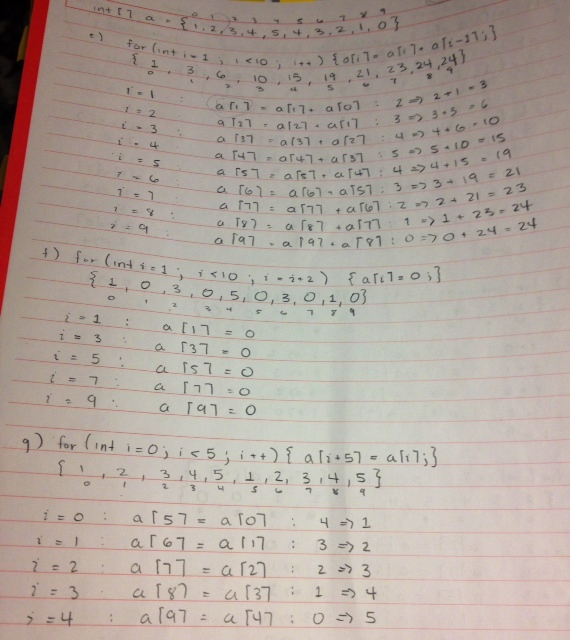 0 1 2 3 4 5 6 7 8 9
int [] a = {1,2,3,4,5,4,3,2,1,0}
e) for (int i=1 ; i<10 ; i++) {a[i]=a[i]+a[i-1];}
{ 1, 3, 6, 10, 15, 19, 21, 23, 24, 24}
0 1 2 3 4 5 6 7 8 9
i = 1 : a[1] = a[1]+ a[0] : 2 => 2+1 = 3
i = 2 a[2] = a[2]+a[1] : 3 => 3+3 = 6
i = 3 : a[3] = a[3]+a[2] : 4 => 4+6 = 10
i = 4 a[4] = a[4]+a[3] : 5 => 5+10 = 15
i = 5 : a[5] = a[5]+a[4] : 4 => 4+15 = 19
i = 6 : a[6] = a[6]+a[5] : 3 => 3+19 = 21
i = 7 : a[7] = a[7]+a[6] : 2 => 2+21 = 23
i = 8 : a[8] = a[8]+a[7] : 1 => 1+23 = 24
i = 9 : a[9] = a[9]+a[8] : 0 => 0+24 = 24
f) for (int i=1 ; i<10 ; i=i+2) {a[i]=0;}
{ 1, 0, 3, 0, 5, 0, 3, 0, 1, 0}
0 1 2 3 4 5 6 7 8 9
i = 1 : a[1] = 0
i = 3 : a[3] = 0
i = 5 : a[5] = 0
i = 7 : a[7] = 0
i = 9 : a[9] = 0
g) for (int i=0; i<5 ; i++) { a[i+5] = a[i];}
{ 1, 2, 3, 4, 5, 1, 2, 3, 4, 5}
0 1 2 3 4 5 6 7 8 9
i = 0 : a[5] = a[0] : 4 => 1
i = 1 : a[6] = a[1] : 3 => 2
i = 2 : a[7] = a[2] : 2 => 3
i = 3 : a[8] = a[3] : 1 => 4
i = 4 : a[9] = a[4] : 0 => 5